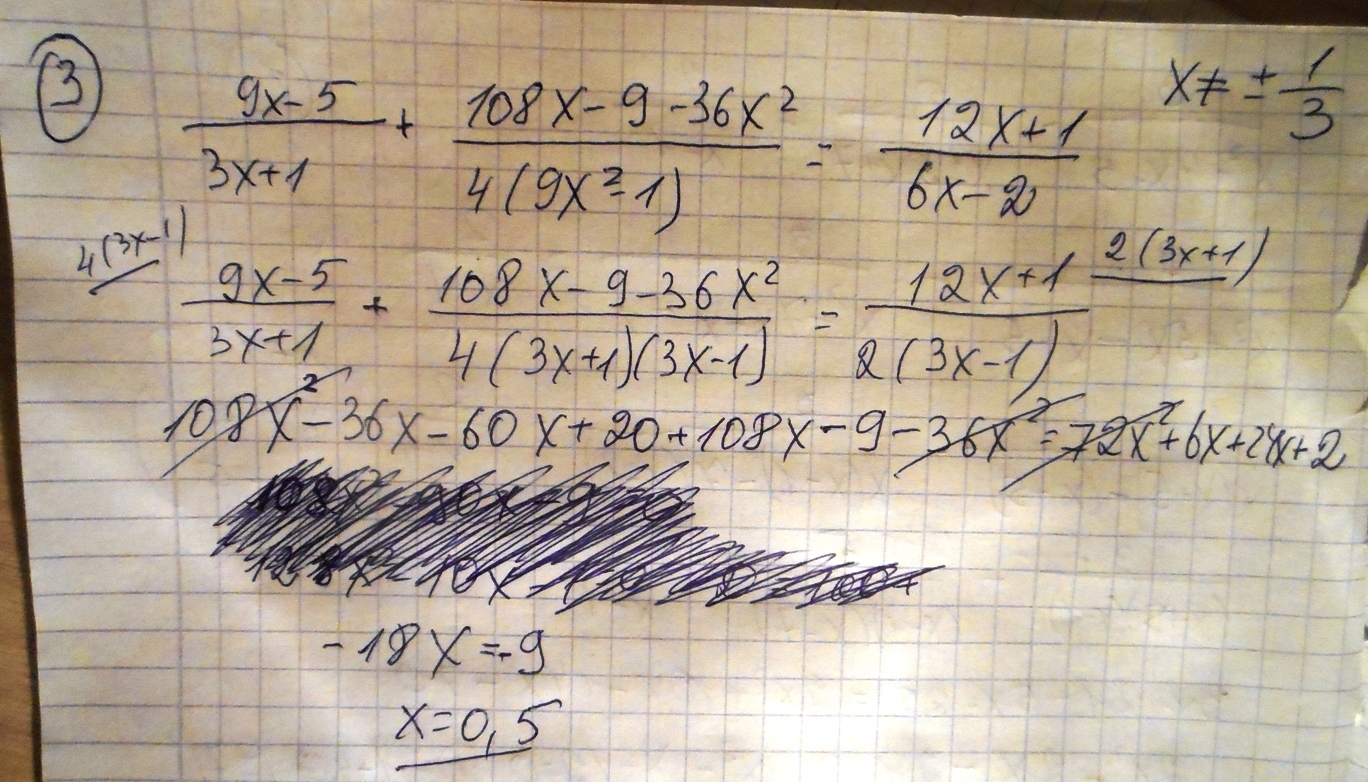 ③ (9x-5)/(3x+1) + (108x-9-36x²)/(4(9x²-1)) = (12x+1)/(6x-2) x≠±1/3
4(3x-1) (9x-5)/(3x+1) + (108x-9-36x²)/(4(3x+1)(3x-1)) = (12x+1)/(2(3x-1)) 2(3x+1)
108x²-36x-60x+20+108x-9-36x²=72x²+6x+24x+2
-18x=-9
x=0,5